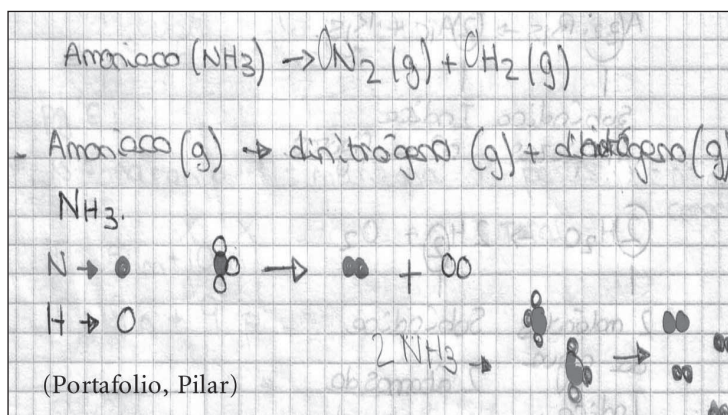 Amoniaco (NH3) → N2 (g) + H2 (g)
Amoniaco (g) → dinitrógeno (g) + (g)
NH3.
N →
+
H →
2 NH3 →
(Portafolio, Pilar)